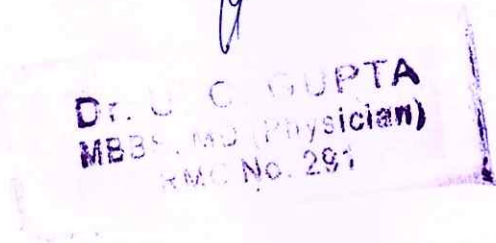 Dr. U. C. GUPTA
MBBS, MD (Physician)
RMC No. 291